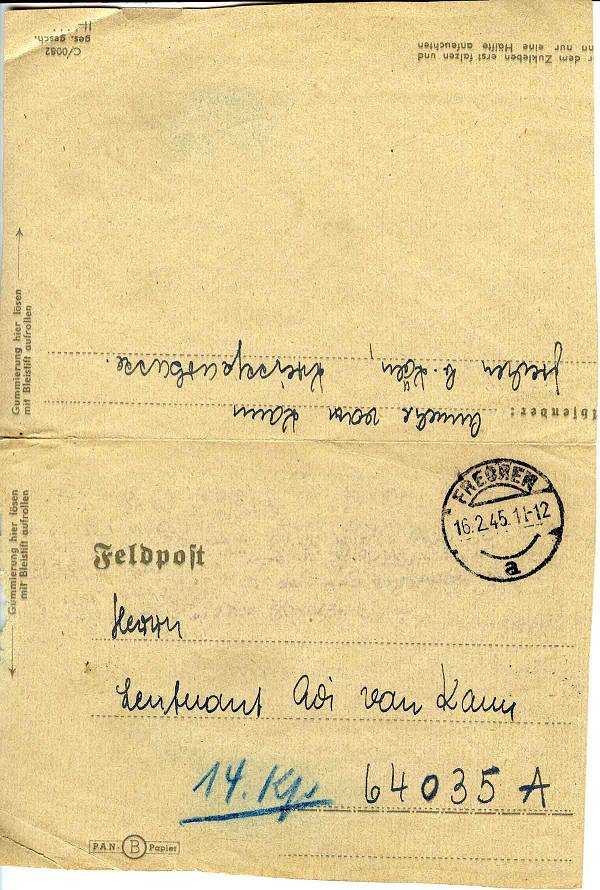 C/0082
ges. gesch.
dem Zukleben erst falzen und
nur eine Hälfte anfeuchten
Gummierung hier lösen
mit Bleistift aufrollen
Absender: van Kann
Frechen b. Köln, Kreissparkasse.
Gummierung hier lösen
mit Bleistift aufrollen
FRECHEN
16.2.45.11-12
a
Feldpost
Herrn
Leutnant Adi van Kann
14. Kp. 64035 A
PAN- B Papier